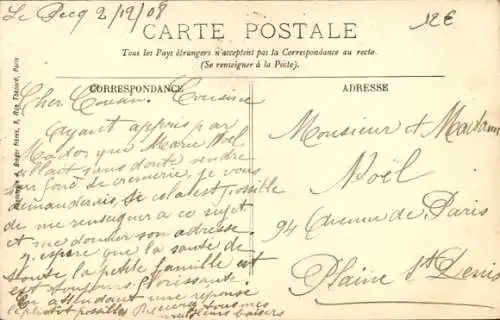 Le Pecq 2/12/08
12€
CARTE POSTALE
Tous les Pays étrangers n'acceptent pas la Correspondance au recto.
(Se renseigner à la Poste).
CORRESPONDANCE
ADRESSE
Berger Frères, 9, Rue Thénard, Paris
Cher Cousin. Cousine
Ayant appris par
Mado, que Marie Noël
allait sans doute vendre
son fond de cremerie, je vous
demandais, si cela est possible
de me renseigner a ce sujet
et me donner son adresse.
J'espère que la santé de
toute la petite famille est
est toujours florissante.
En attendant une réponse
le plutôt possible Recevez tous mes
meilleurs baisers
Monsieur et Madame
Noël
94 Avenue de Paris
Plaine St Denis